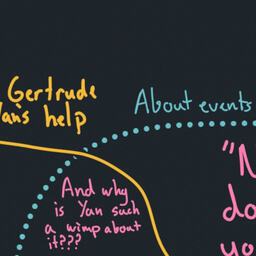 Gertrude
help
About events
And why
is Yan such
a wimp about
it???